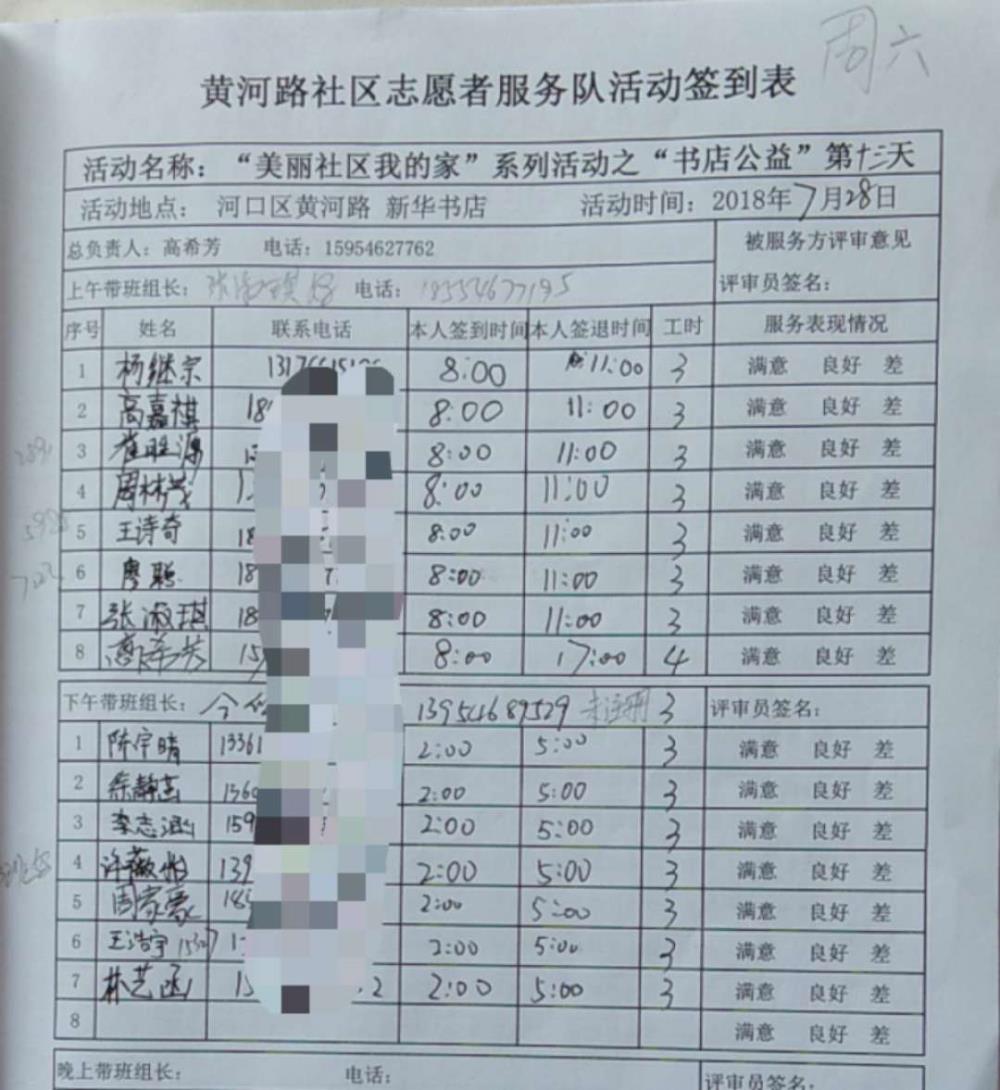 周六
黄河路社区志愿者服务队活动签到表
活动名称：“美丽社区我的家”系列活动之“书店公益”第十三天
活动地点： 河口区黄河路 新华书店 活动时间：2018年7月28日
总负责人：高希芳 电话：15954627762 被服务方评审意见
上午带班组长： 电话：18554677195 评审员签名：
序号 姓名 联系电话 本人签到时间 本人签退时间 工时 服务表现情况
1 杨继宗 8:00 11:00 3 满意 良好 差
2 高嘉祺 18 8:00 11:00 3 满意 良好 差
3 崔胜源 8:00 11:00 3 满意 良好 差
4 周林茂 8:00 11:00 3 满意 良好 差
5 王诗奇 18 8:00 11:00 3 满意 良好 差
6 廖聪 18 8:00 11:00 3 满意 良好 差
7 张淑琪 18 8:00 11:00 3 满意 良好 差
8 高希芳 15 8:00 17:00 4 满意 良好 差
下午带班组长： 13954689529 3 评审员签名：
1 陈宇晴 13361 2:00 5:00 3 满意 良好 差
2 徐静菡 1360 2:00 5:00 3 满意 良好 差
3 李志涵 159 2:00 5:00 3 满意 良好 差
4 许薇怡 139 2:00 5:00 3 满意 良好 差
5 周家豪 18 2:00 5:00 3 满意 良好 差
6 王浩宇 2:00 5:00 3 满意 良好 差
7 林艺函 15 2 2:00 5:00 3 满意 良好 差
8 满意 良好 差
晚上带班组长： 电话： 评审员签名：